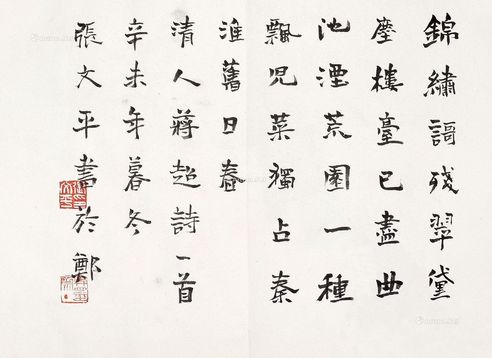 錦繡謌残翠黛
塵樓臺已盡曲
池湮荒園一種
飄児菜獨占秦
淮舊日春
清人蔣超詩一首
辛未年暮冬
張文平書於鄭